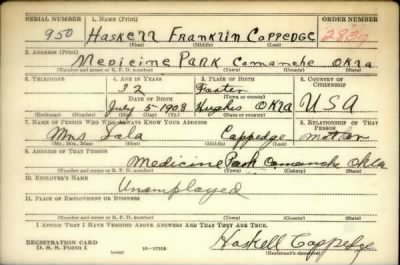 SERIAL NUMBER 1. NAME (Print) ORDER NUMBER
950 Haskell Franklin Coppedge 2839
(First) (Middle) (Last)
2. ADDRESS (Print)
Medicine Park Comanche Okla
(Number and street or R. F. D. number) (Town) (County) (State)
3. TELEPHONE 4. AGE IN YEARS 5. PLACE OF BIRTH 6. COUNTRY OF CITIZENSHIP
32
DATE OF BIRTH (Town or county)
July 5 1908 Hughes Okla USA
(Exchange) (No.) (Mo.) (Day) (Yr.) (State or country)
7. NAME OF PERSON WHO WILL ALWAYS KNOW YOUR ADDRESS 8. RELATIONSHIP OF THAT PERSON
Mrs. Lala Coppedge mother
(Mr., Mrs., Miss) (First) (Middle) (Last)
9. ADDRESS OF THAT PERSON
Medicine Park Comanche Okla
(Number and street or R. F. D. number) (Town) (County) (State)
10. EMPLOYER'S NAME
Unemployed
11. PLACE OF EMPLOYMENT OR BUSINESS
(Number and street or R. F. D. number) (Town) (County) (State)
I AFFIRM THAT I HAVE VERIFIED ABOVE ANSWERS AND THAT THEY ARE TRUE.
REGISTRATION CARD
D. S. S. FORM 1 (over) Haskell Coppedge
(Registrant's signature)